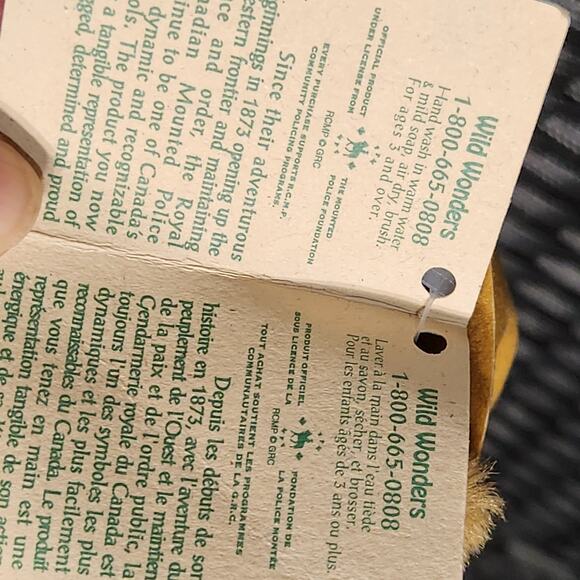 Wild Wonders
1-800-665-0808
Hand wash in warm water
& mild soap, air dry, brush.
For ages 3 and over.
OFFICIAL PRODUCT
UNDER LICENSE FROM
THE MOUNTED
POLICE FOUNDATION
RCMP GRC
EVERY PURCHASE SUPPORTS R.C.M.P.
COMMUNITY POLICING PROGRAMS.
Since their adventurous
ginnings in 1873 opening up the
estern frontier, and maintaining
ce and order, the Royal
adian Mounted Police
tinue to be one of Canada's
dynamic and recognizable
ols. The product you now
a tangible representation of
ged, determined and proud
Wild Wonders
1-800-665-0808
Laver à la main dans l'eau tiède
et au savon, sécher, et brosser.
Pour les enfants âgés de 3 ans ou plus.
PRODUIT OFFICIEL
SOUS LICENCE DE LA
FONDATION DE
LA POLICE MONTÉE
RCMP GRC
TOUT ACHAT SOUTIENT LES PROGRAMMES
COMMUNAUTAIRES DE LA G.R.C.
Depuis les débuts de son
histoire en 1873, avec l'aventure du
peuplement de l'Ouest et le maintien
de la paix et de l'ordre public, la
Gendarmerie royale du Canada est
toujours l'un des symboles les plus
dynamiques et les plus facilement
reconnaissables du Canada. Le produit
que vous tenez en main est une
représentation tangible de son action
énergique et de